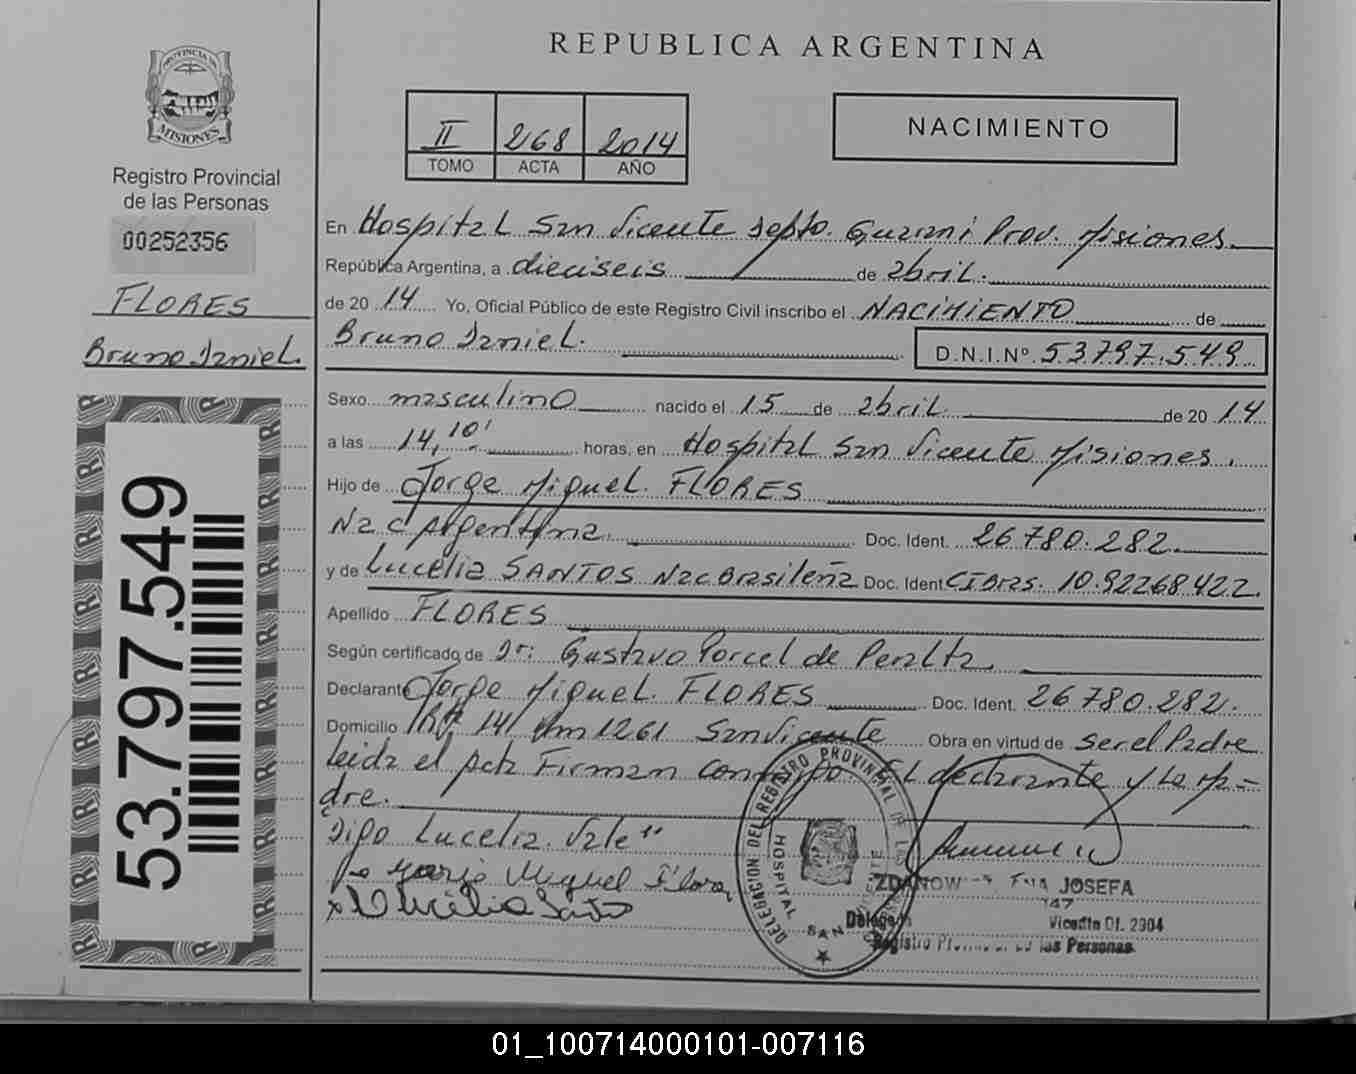 REPUBLICA ARGENTINA
PROVINCIA DE
MISIONES
Registro Provincial
de las Personas
00252356
FLORES
Bruno Daniel.
53.797.549
II 268 2014
TOMO ACTA AÑO
NACIMIENTO
En Hospital San Vicente Depto. Guaraní Prov. Misiones.
República Argentina, a dieciseis de abril.
de 20 14 Yo, Oficial Público de este Registro Civil inscribo el NACIMIENTO de
Bruno Daniel. D.N.I.Nº 53.797.549
Sexo masculino nacido el 15 de abril de 20 14
a las 14,10' horas, en Hospital San Vicente Misiones.
Hijo de Jorge Miguel FLORES
Nac Argentina. Doc. Ident. 26.780.282.
y de Lucelia SANTOS Nac Brasileña Doc. Ident CI Bras. 10.92268422.
Apellido FLORES
Según certificado de Dr: Gustavo Porcel de Peralta
Declarante Jorge Miguel FLORES Doc. Ident. 26.780.282.
Domicilio 14 Km 1261 San Vicente Obra en virtud de ser el Padre
leida el acta Firman conmigo. El declarante y la ma-
dre.
"Digo Lucelia. Vale"
Jorge Miguel Flores
Lucelia Santos
DELEGACION DEL REGISTRO PROVINCIAL DE LAS
HOSPITAL
SAN VICENTE
JOSEFA
Vicente DI. 2904
Registro Provincial de las Personas
01_100714000101-007116